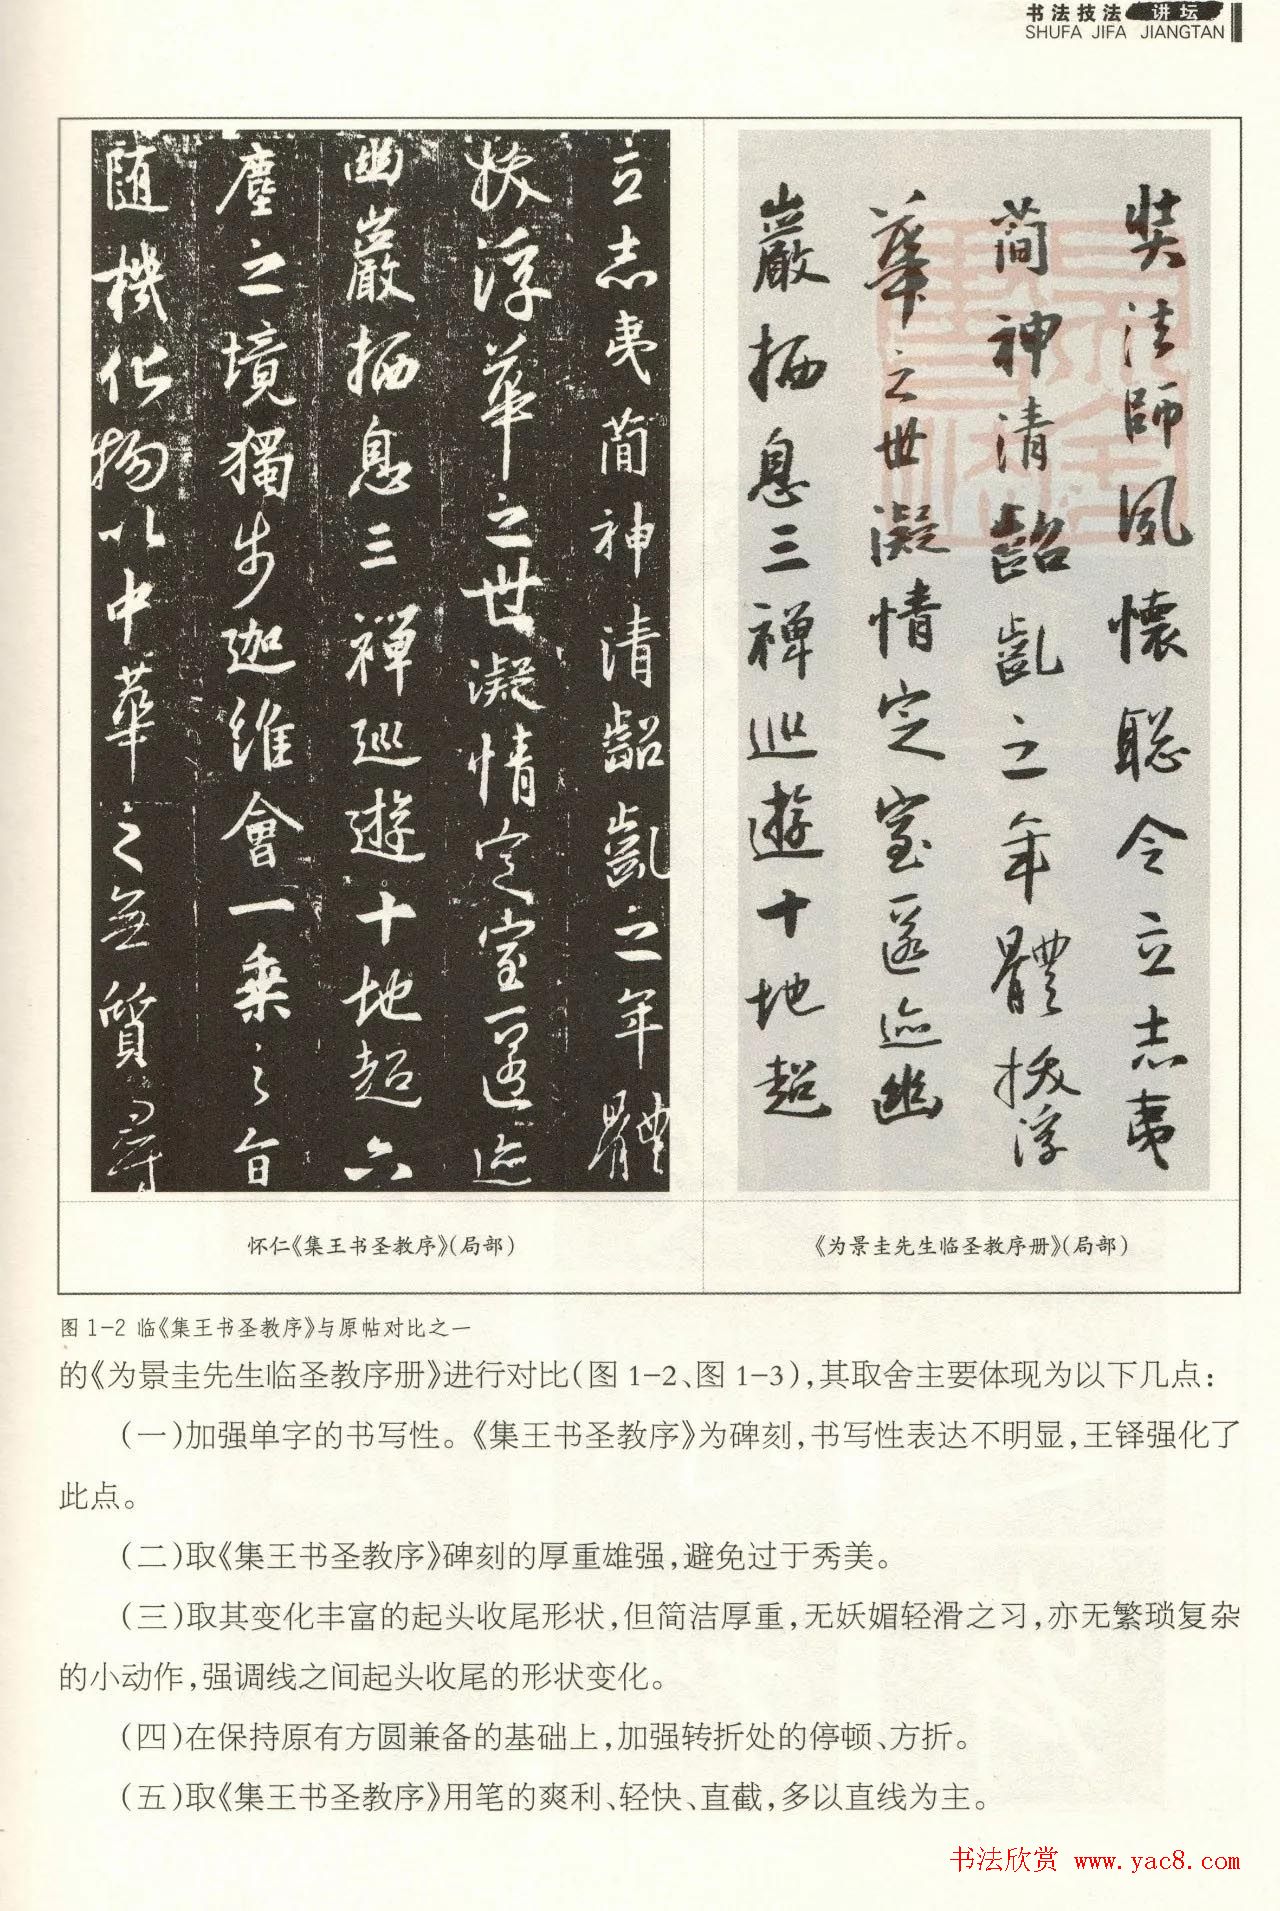 书法技法 讲坛
SHUFA JIFA JIANGTAN
立志夷简神清龆齓之年體
拔浮華之世凝情定室匿迹
幽巖栖息三禪巡遊十地超六
塵之境獨步迦維會一乘之旨
随機化物以中華之無質尋
奘法師夙懷聡令立志夷
簡神清龆齓之年體拔浮
華之世凝情定室匿迹幽
巖栖息三禅巡遊十地超
怀仁《集王书圣教序》(局部)
《为景圭先生临圣教序册》(局部)
图 1-2 临《集王书圣教序》与原帖对比之一
的《为景圭先生临圣教序册》进行对比(图 1-2、图 1-3),其取舍主要体现为以下几点:
(一)加强单字的书写性。《集王书圣教序》为碑刻,书写性表达不明显,王铎强化了
此点。
(二)取《集王书圣教序》碑刻的厚重雄强,避免过于秀美。
(三)取其变化丰富的起头收尾形状,但简洁厚重,无妖媚轻滑之习,亦无繁琐复杂
的小动作,强调线之间起头收尾的形状变化。
(四)在保持原有方圆兼备的基础上,加强转折处的停顿、方折。
(五)取《集王书圣教序》用笔的爽利、轻快、直截,多以直线为主。
书法欣赏 www.yac8.com